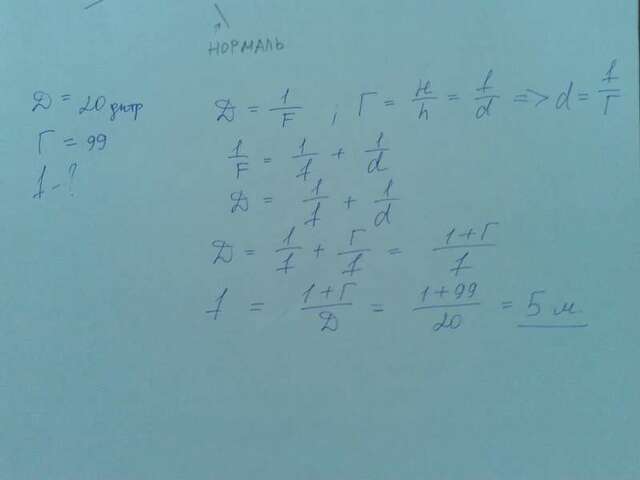 НОРМАЛЬ
D = 20 дптр
Г = 99
f - ?
D = 1/F ; Г = H/h = f/d => d = f/Г
1/F = 1/f + 1/d
D = 1/f + 1/d
D = 1/f + Г/f = 1+Г/f
f = 1+Г/D = 1+99/20 = 5 м